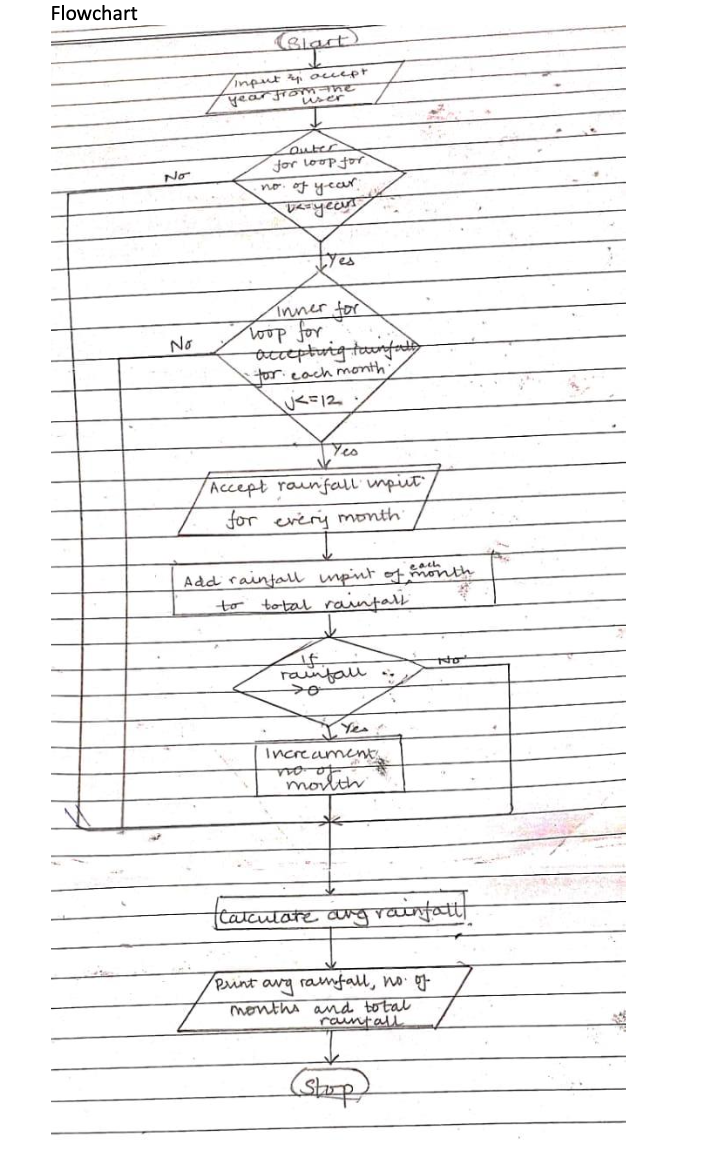 Flowchart
Start
Input & accept
year from the
user
No
outer
for loop for
no. of year
i<=years
Yes
Inner for
loop for
accepting rainfall
for each month
j<=12
No
Yes
Accept rainfall input
for every month
Add rainfall input of each month
to total rainfall
If
rainfall
>0
No
Yes
Increament
no of
month
Calculate avg rainfall
Print avg rainfall, no. of
months and total
rainfall
Stop